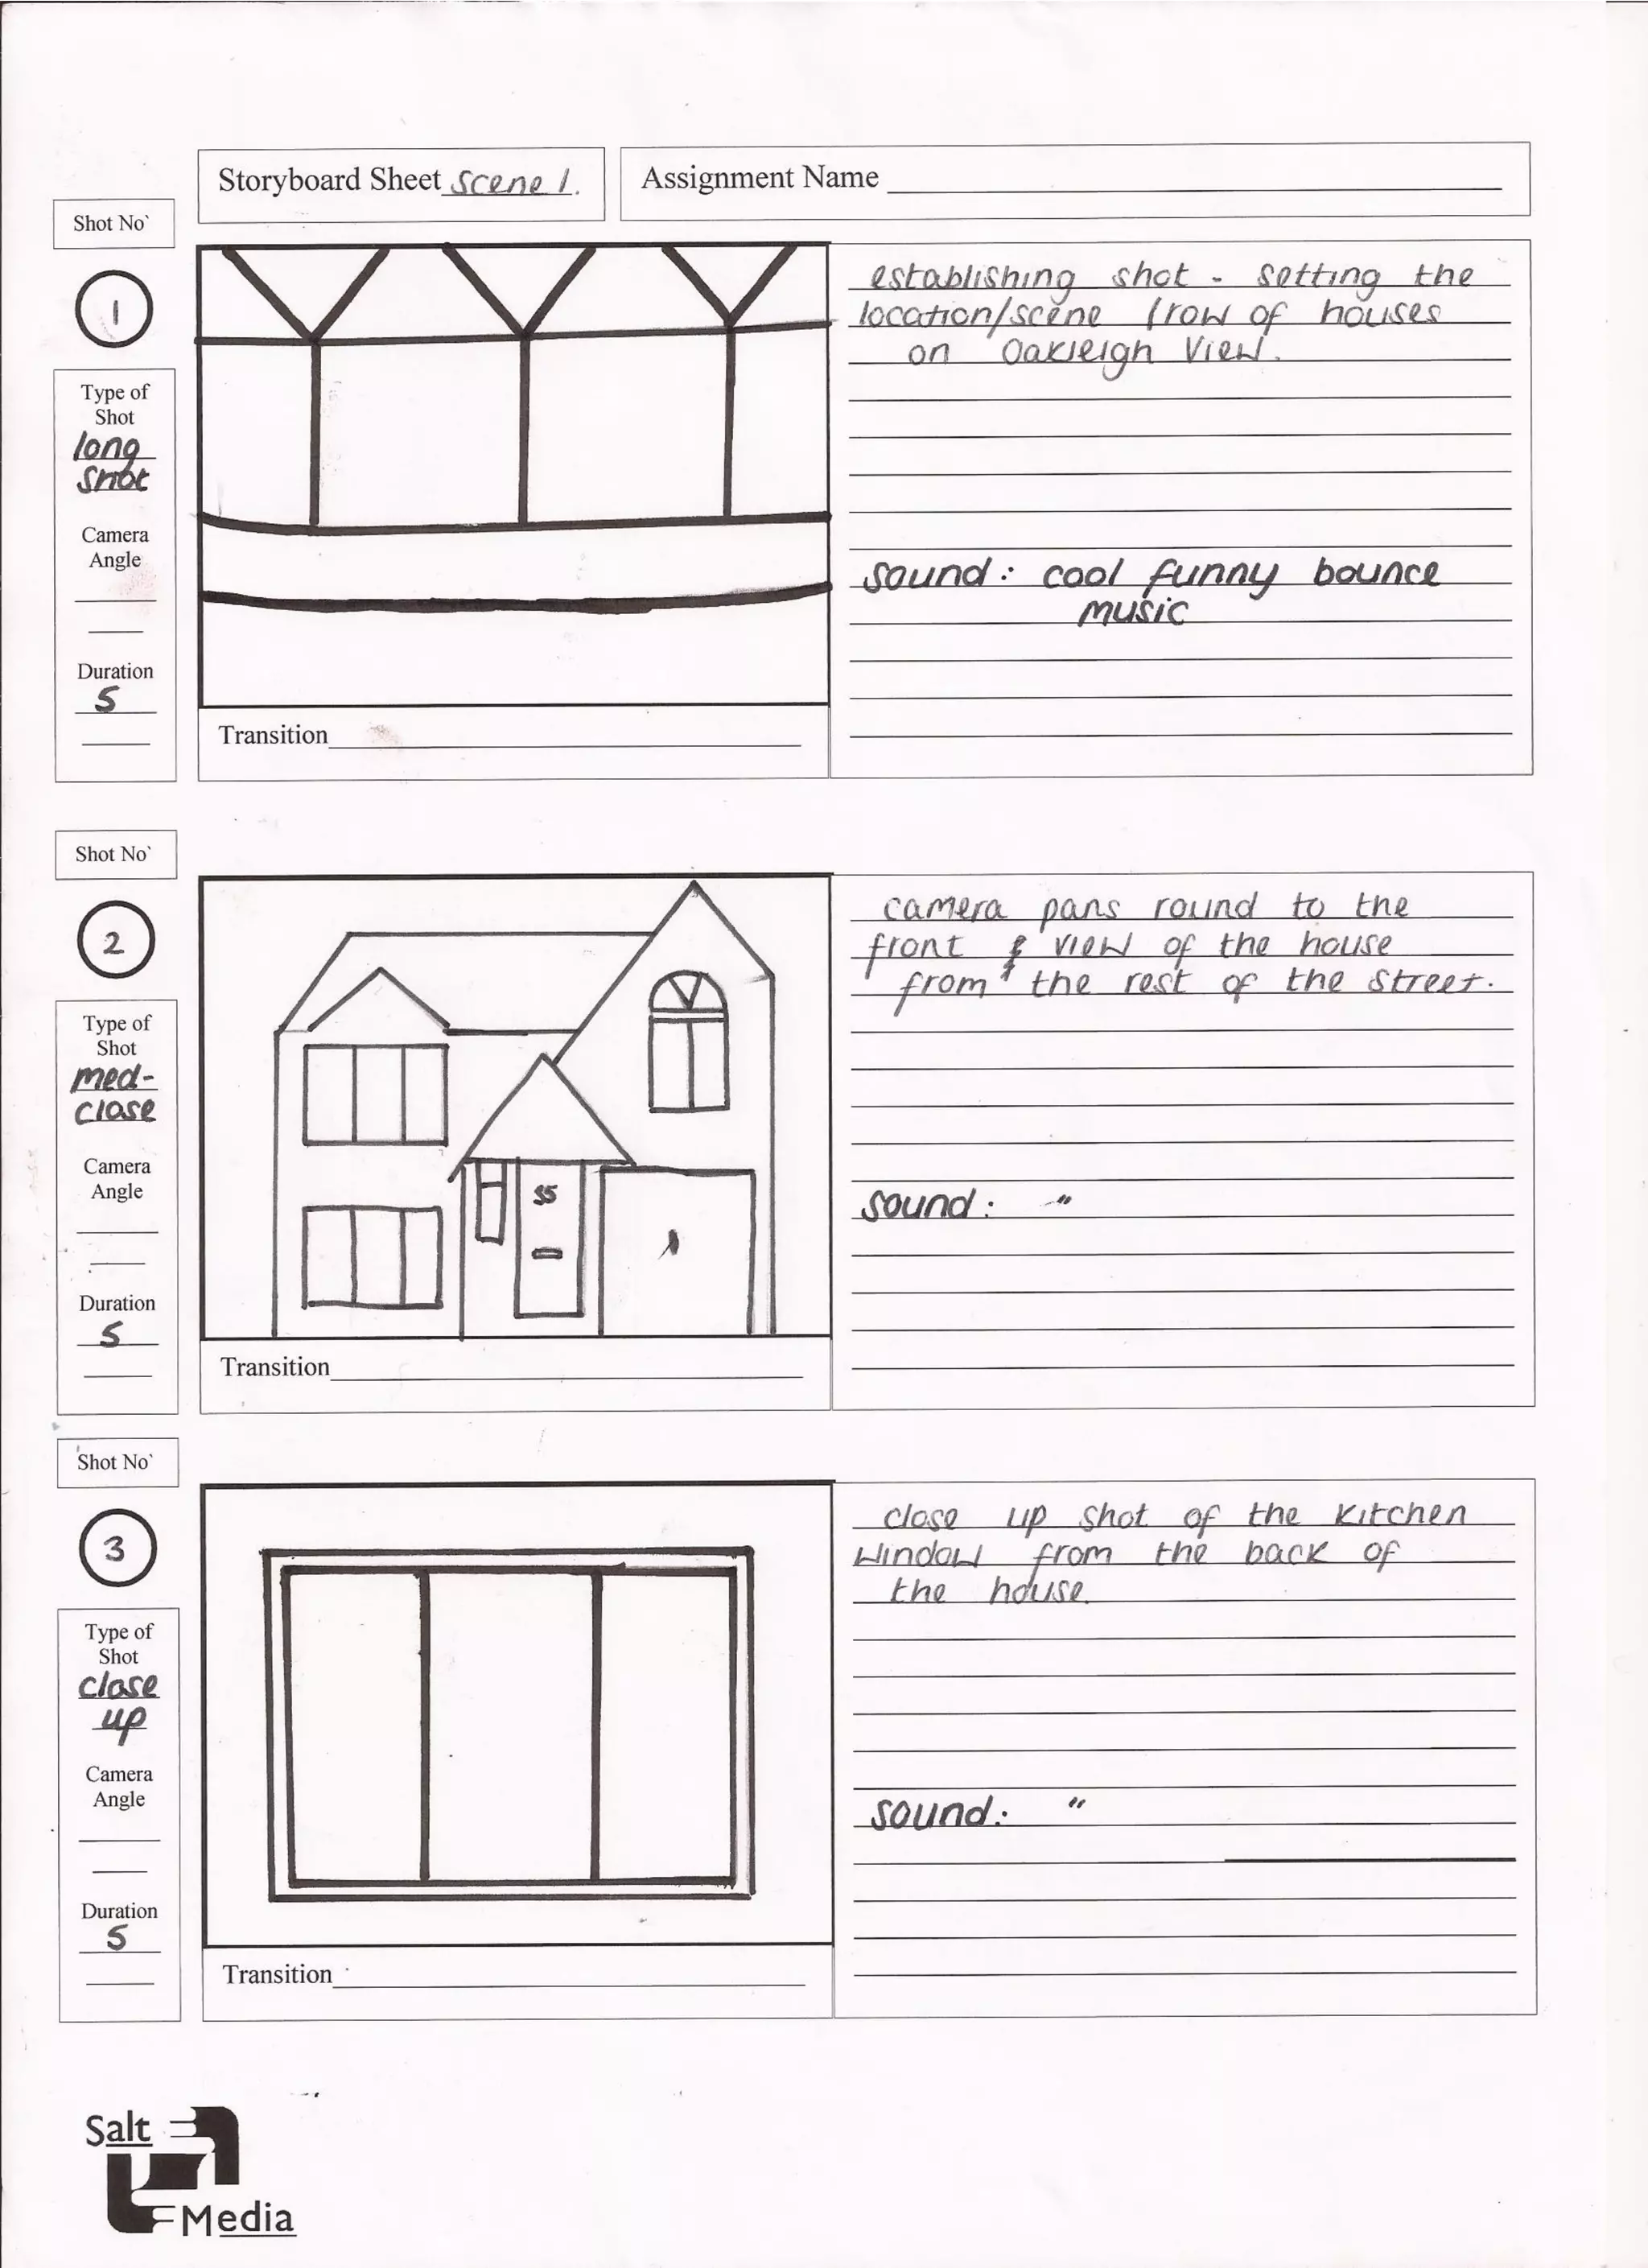 Storyboard Sheet scene 1.
Assignment Name
Shot No`
1
Type of
Shot
long
shot
Camera
Angle
Duration
5
establishing shot - setting the
location/scene (row of houses
on Oakleigh View.
sound: cool funny bounce
music
Transition
Shot No`
2
Type of
Shot
med-
close
Camera
Angle
Duration
5
55
camera pans round to the
front view of the house
from the rest of the street.
sound: "
Transition
Shot No`
3
Type of
Shot
close
up
Camera
Angle
Duration
5
close up shot of the kitchen
window from the back of
the house.
sound: "
Transition
Salt
Media